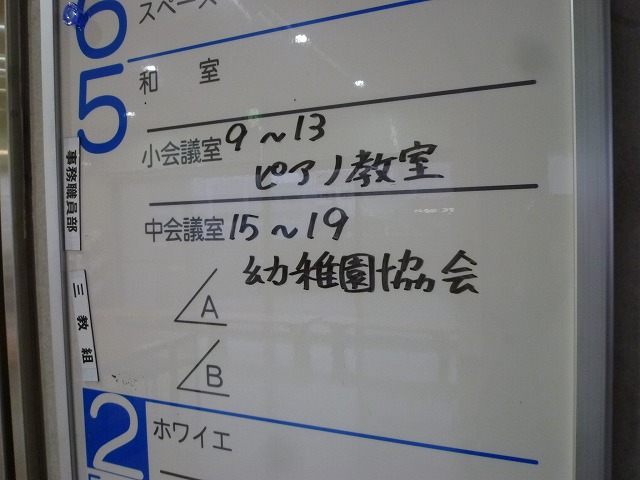 6
スペース
5
和室
小会議室 9~13
ピアノ教室
中会議室 15~19
幼稚園協会
A
B
事務職員部
三教組
2
ホワイエ